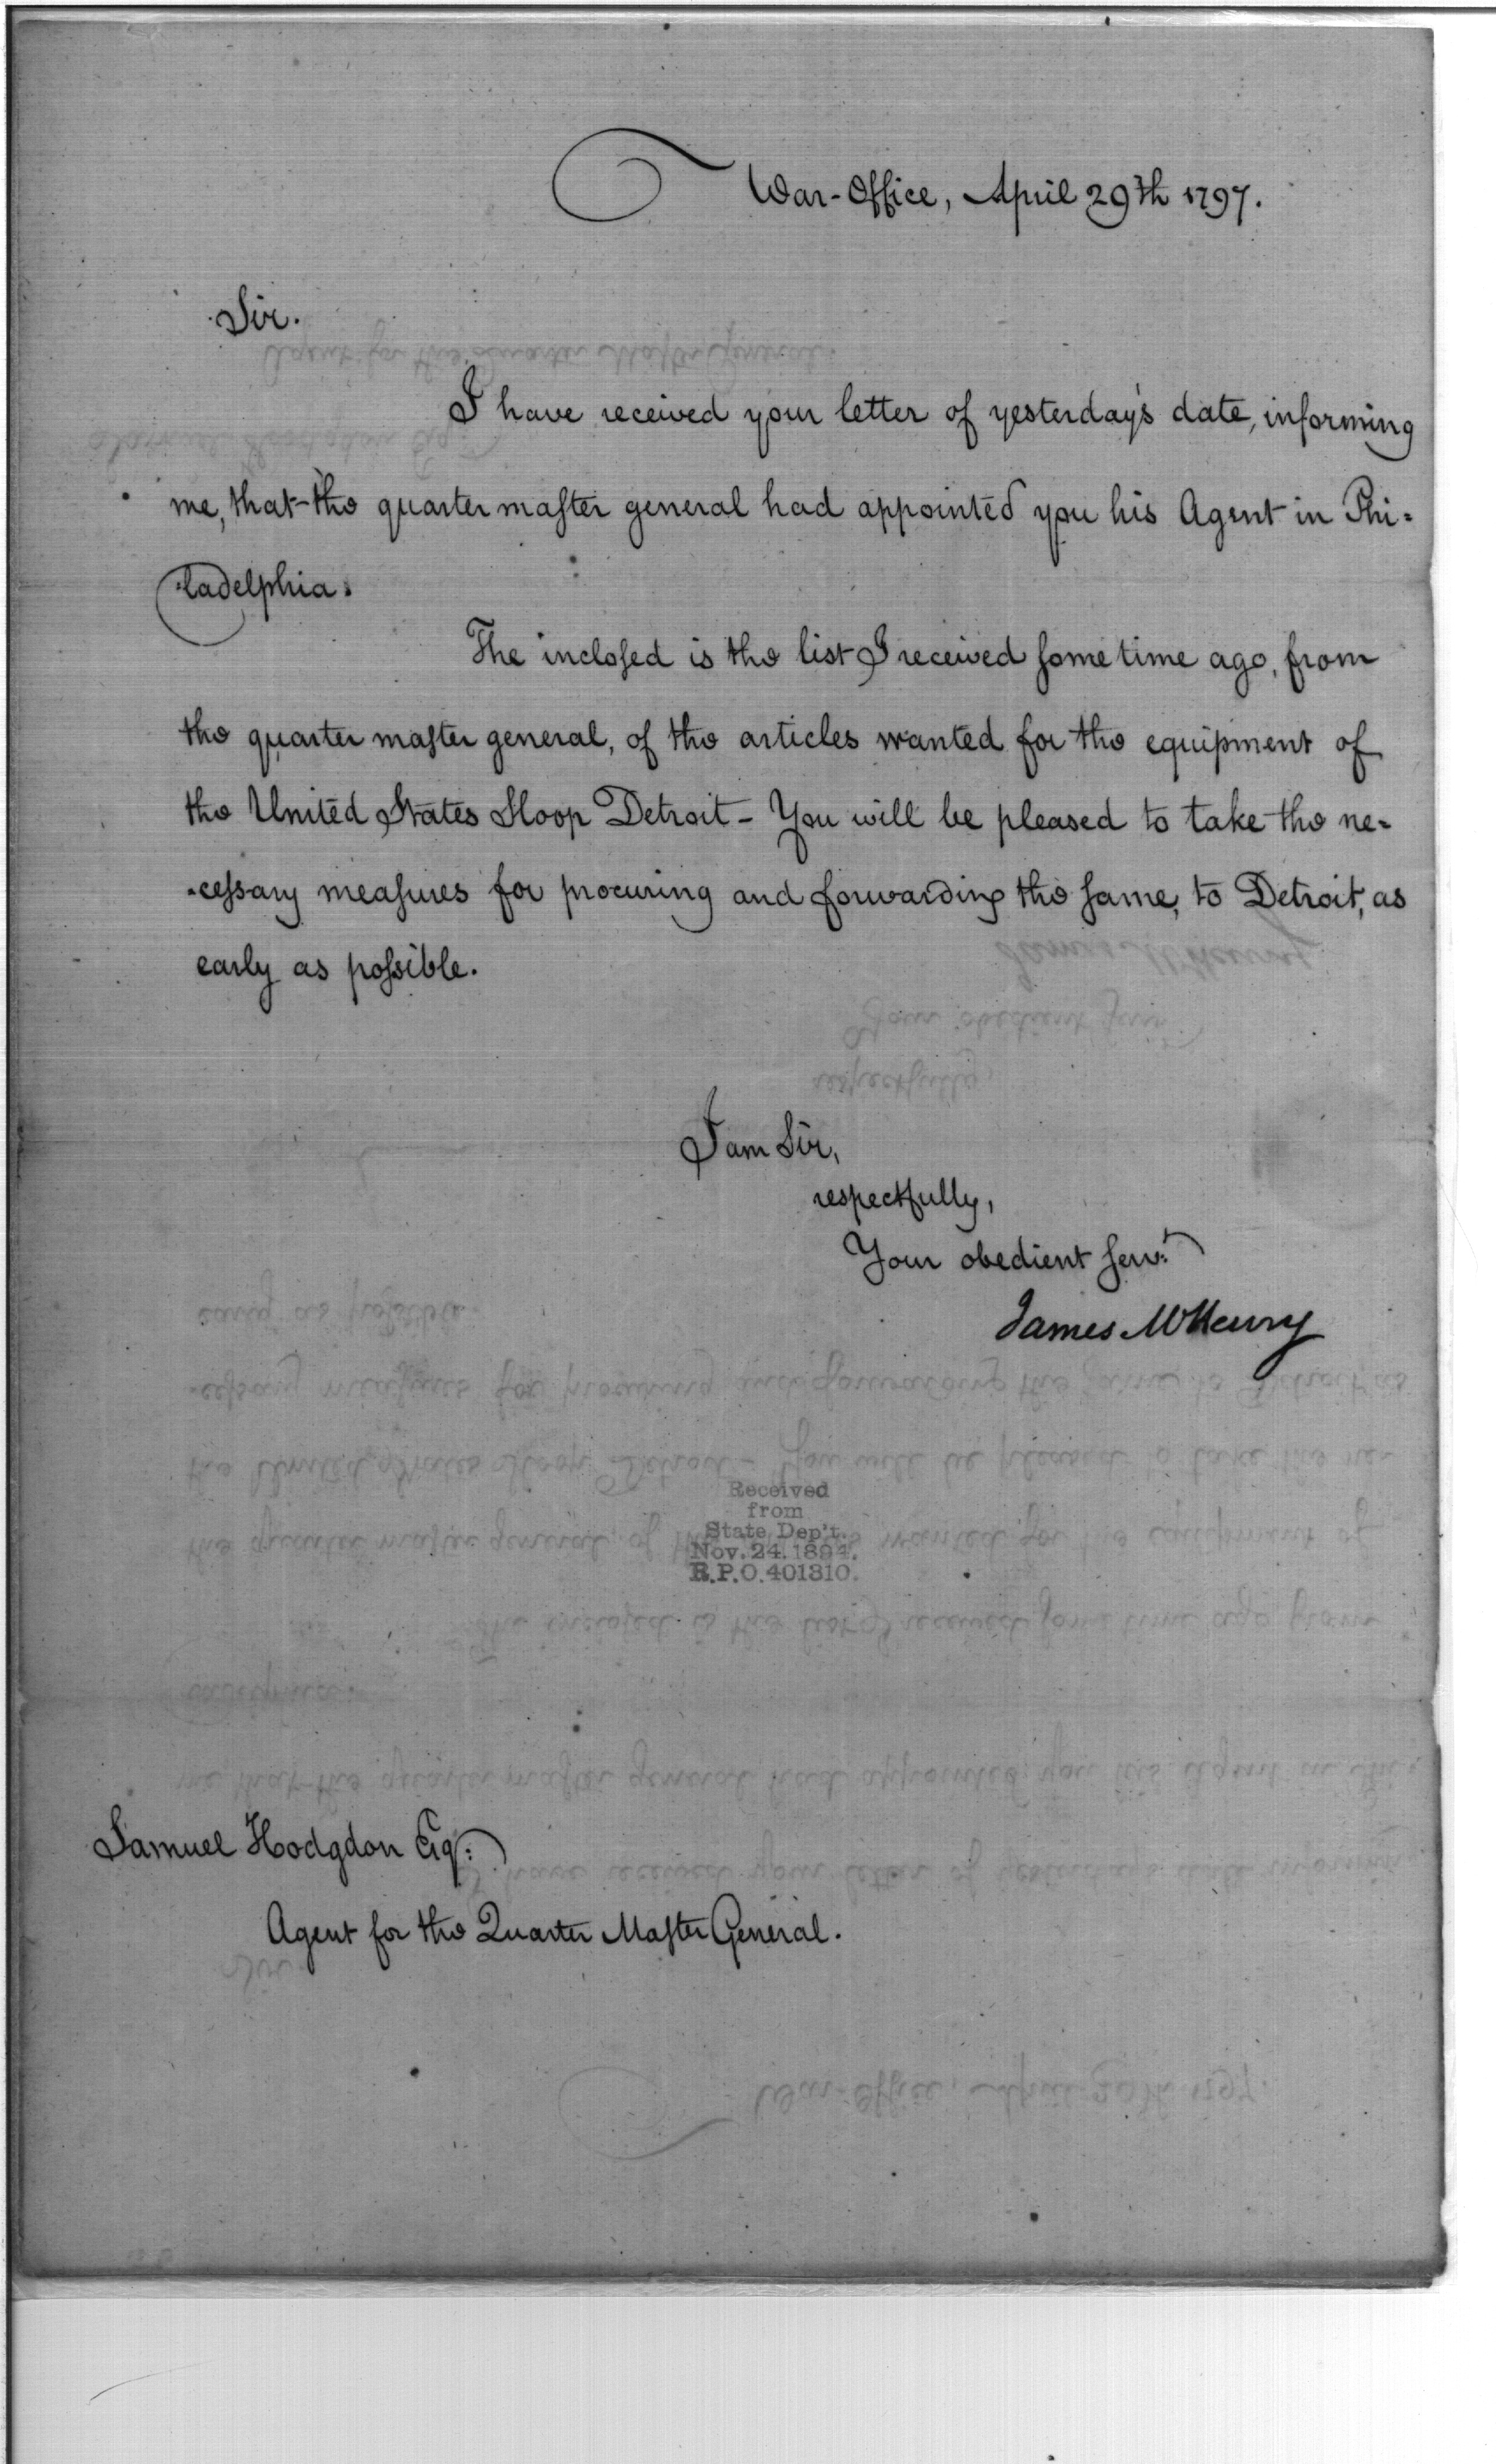 War-Office, April 29th 1797.
Sir.
I have received your letter of yesterday's date, informing
me, that the quarter master general had appointed you his Agent in Phi=
=ladelphia.
The inclosed is the list I received some time ago, from
the quarter master general, of the articles wanted for the equipment of
the United States Sloop Detroit - You will be pleased to take the ne=
=cessary measures for procuring and forwarding the same, to Detroit, as
early as possible.
I am Sir,
respectfully,
Your obedient servt
James McHenry
Received
from
State Dep't.
Nov. 24. 1894.
R.P.O. 401310.
Samuel Hodgdon Esq:
Agent for the Quarter Master General.